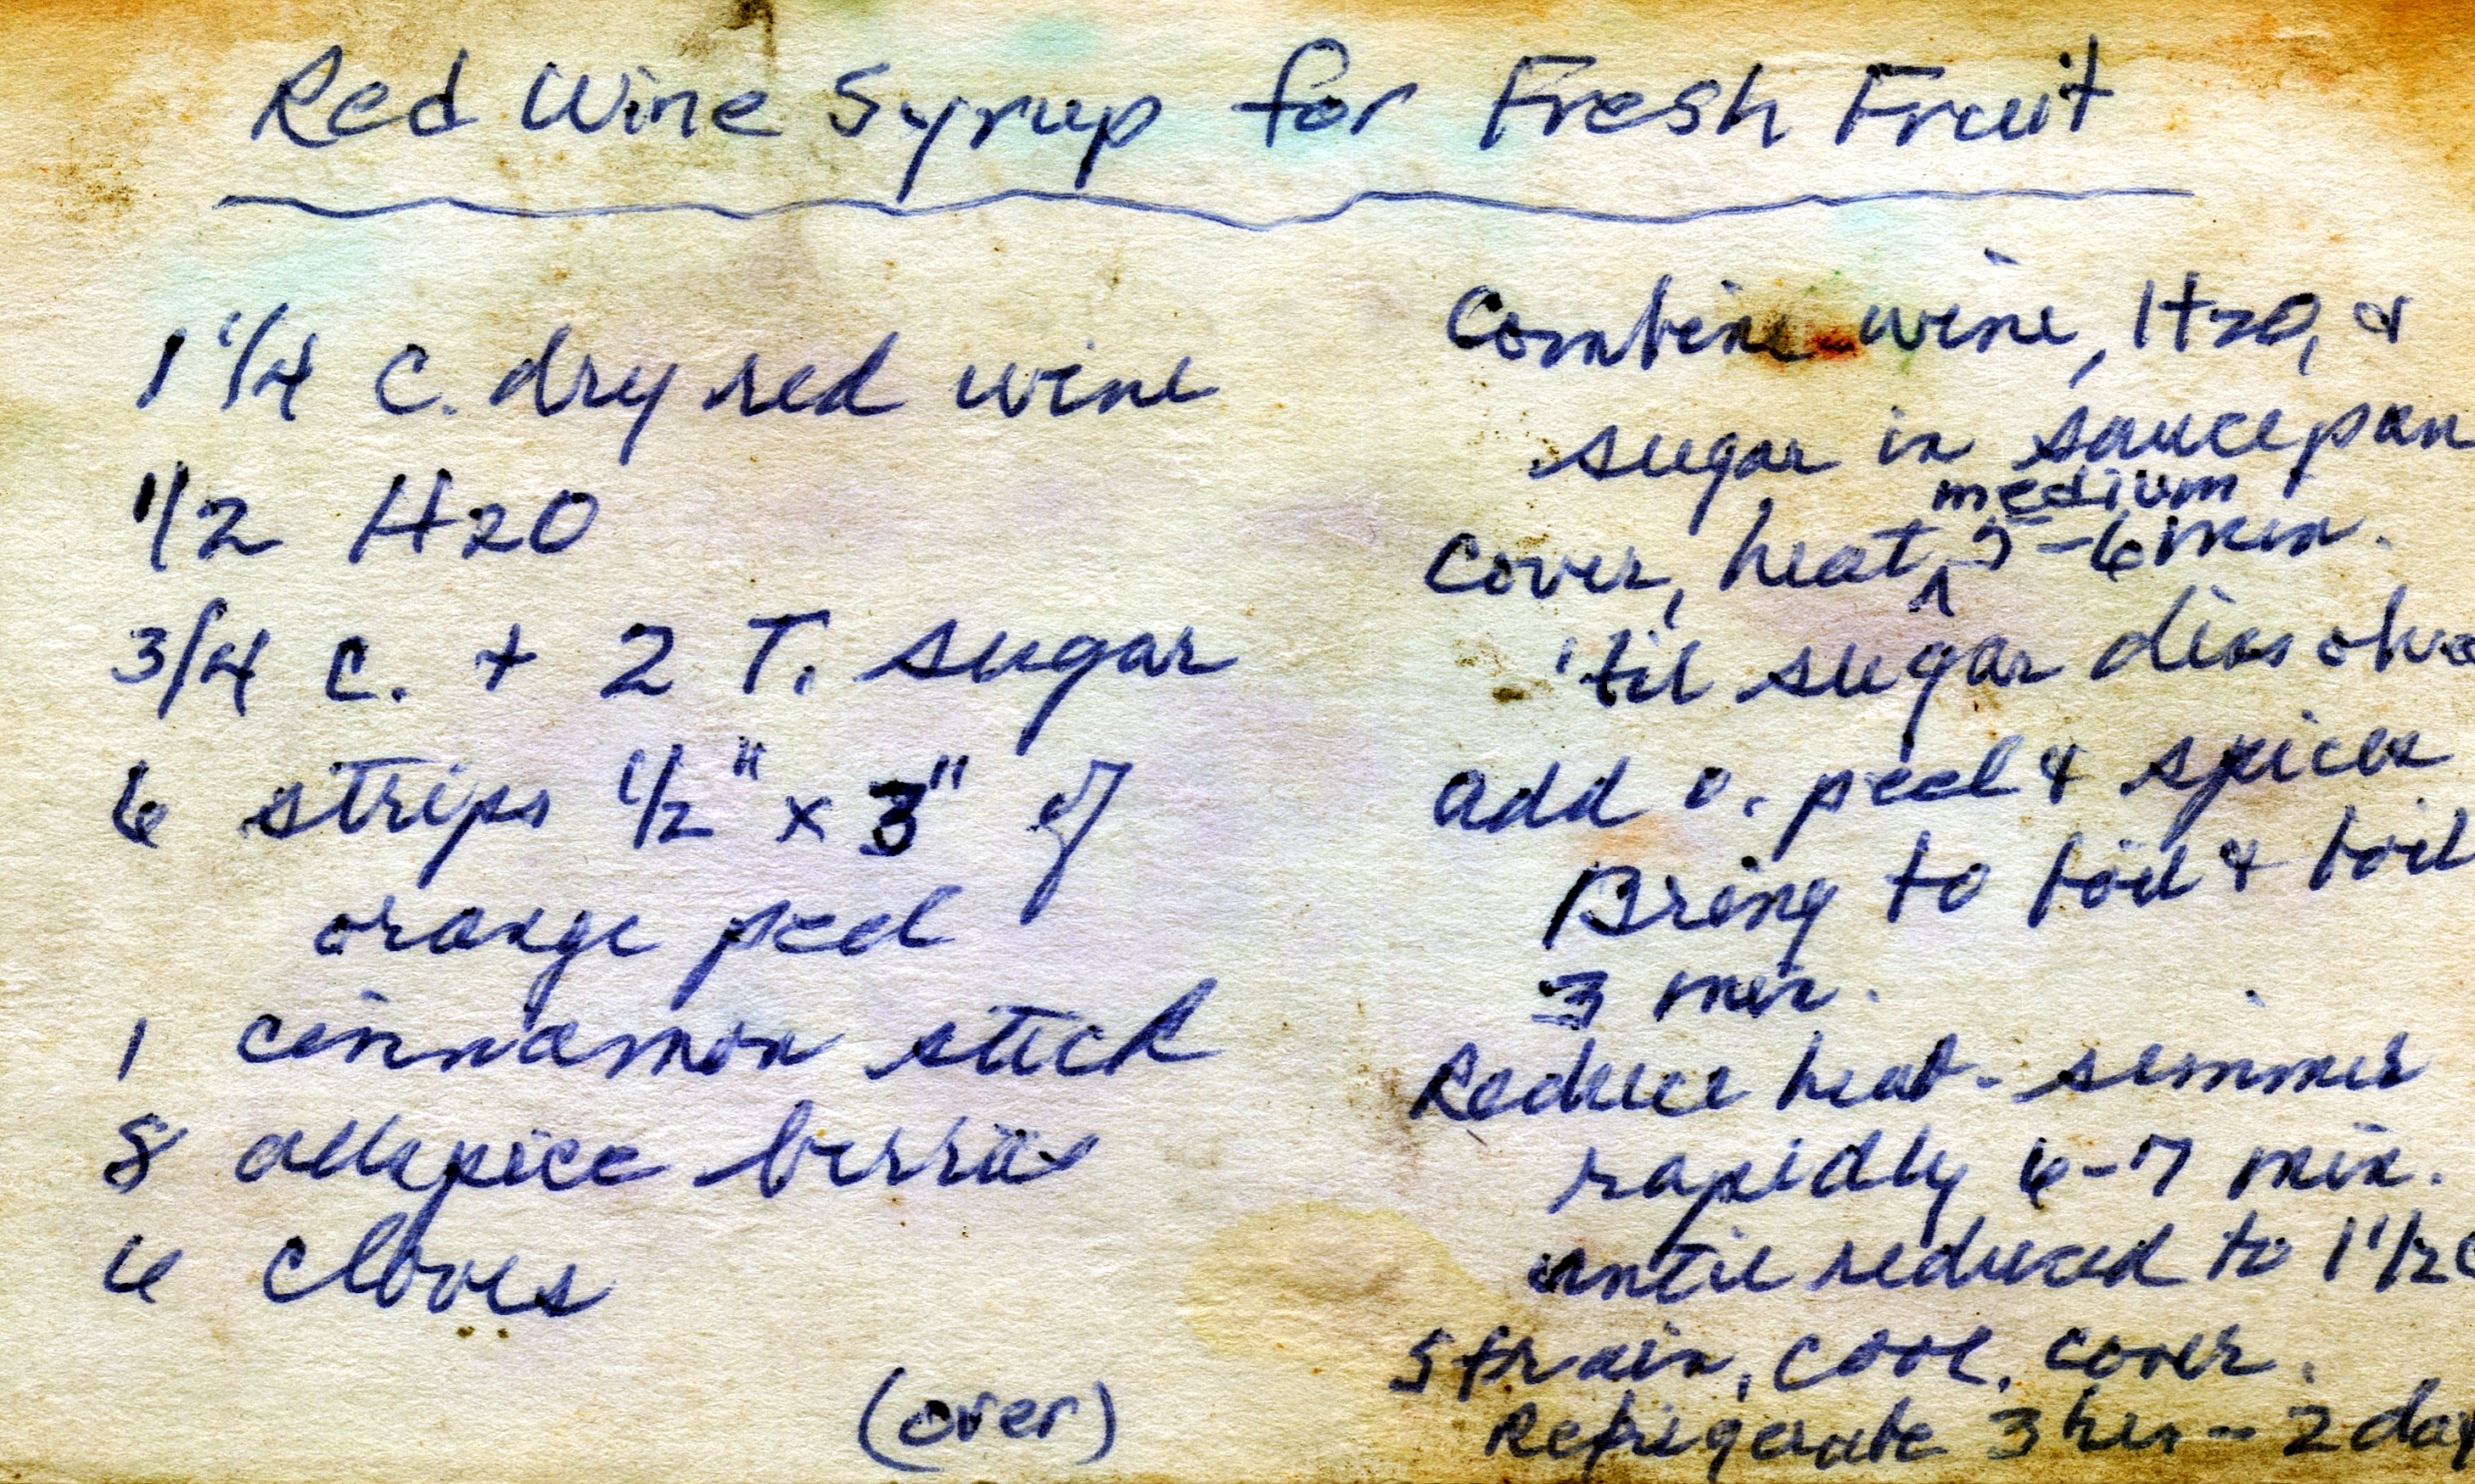 Red Wine Syrup for Fresh Fruit
1 1/4 C. dry red wine
1/2 H2O
3/4 C. + 2 T. sugar
6 strips 1/2" x 3" of
orange peel
1 cinnamon stick
8 allspice berries
6 cloves
(over)
Combine wine, H2O, &
sugar in saucepan
medium
Cover, heat ^ 5-6 min.
'til sugar dissolve
add o. peel & spices
Bring to boil & boil
3 min.
Reduce heat - simmer
rapidly 6-7 min.
until reduced to 1 1/2 c
Strain, cool, cover.
Refrigerate 3 hrs - 2 day